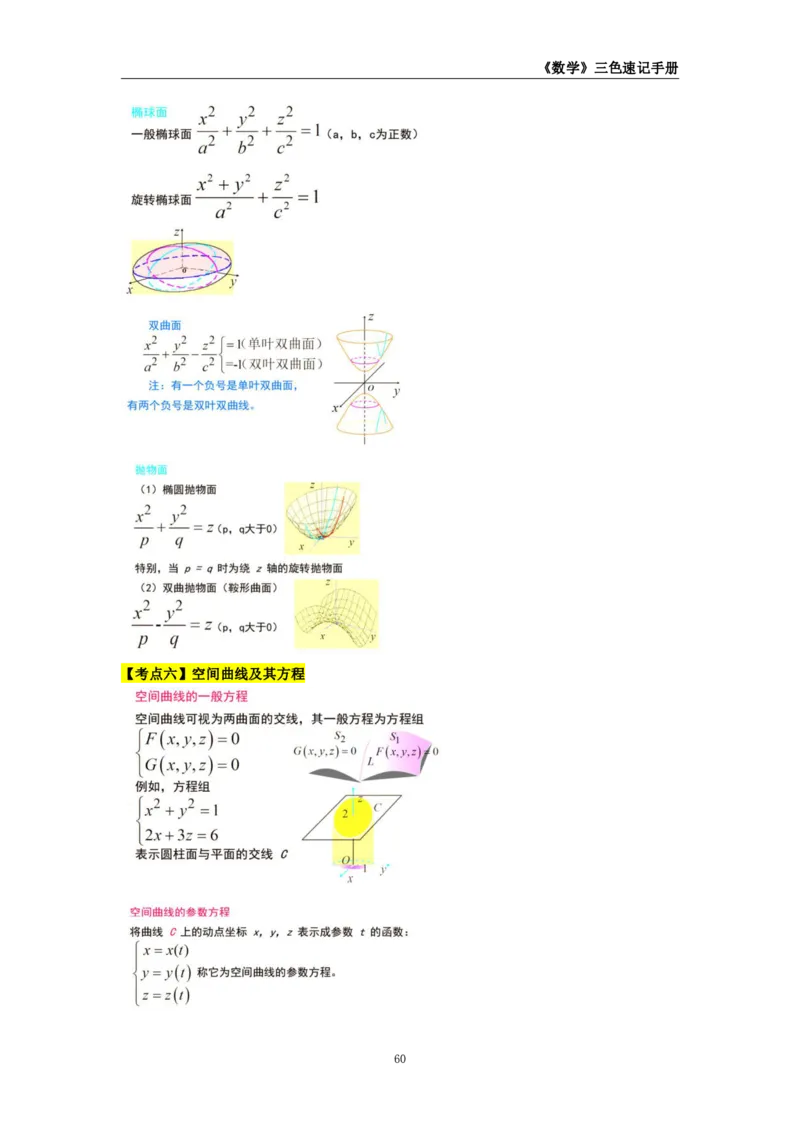 《数学》三色速记手册
椭球面
一般椭球面 x²/a² + y²/b² + z²/c² = 1（a，b，c为正数）
旋转椭球面 (x² + y²)/a² + z²/c² = 1
z
o
x y
双曲面
x²/a² + y²/b² − z²/c² { =1(单叶双曲面)
=-1(双叶双曲面)
注：有一个负号是单叶双曲面，
有两个负号是双叶双曲线。
z
o
y
x
抛物面
（1）椭圆抛物面
x²/p + y²/q = z（p，q大于0）
z
x y
特别，当 p = q 时为绕 z 轴的旋转抛物面
（2）双曲抛物面（鞍形曲面）
x²/p - y²/q = z（p，q大于0）
z
x y
【考点六】空间曲线及其方程
空间曲线的一般方程
空间曲线可视为两曲面的交线，其一般方程为方程组
F(x,y,z)=0
G(x,y,z)=0
S₂ S₁
G(x,y,z)=0 F(x,y,z)=0
L
例如，方程组
x² + y² = 1
2x+3z=6
表示圆柱面与平面的交线 C
z
C
2
O
1 y
x
空间曲线的参数方程
将曲线 C 上的动点坐标 x，y，z 表示成参数 t 的函数：
x = x(t)
y = y(t) 称它为空间曲线的参数方程。
z = z(t)
60